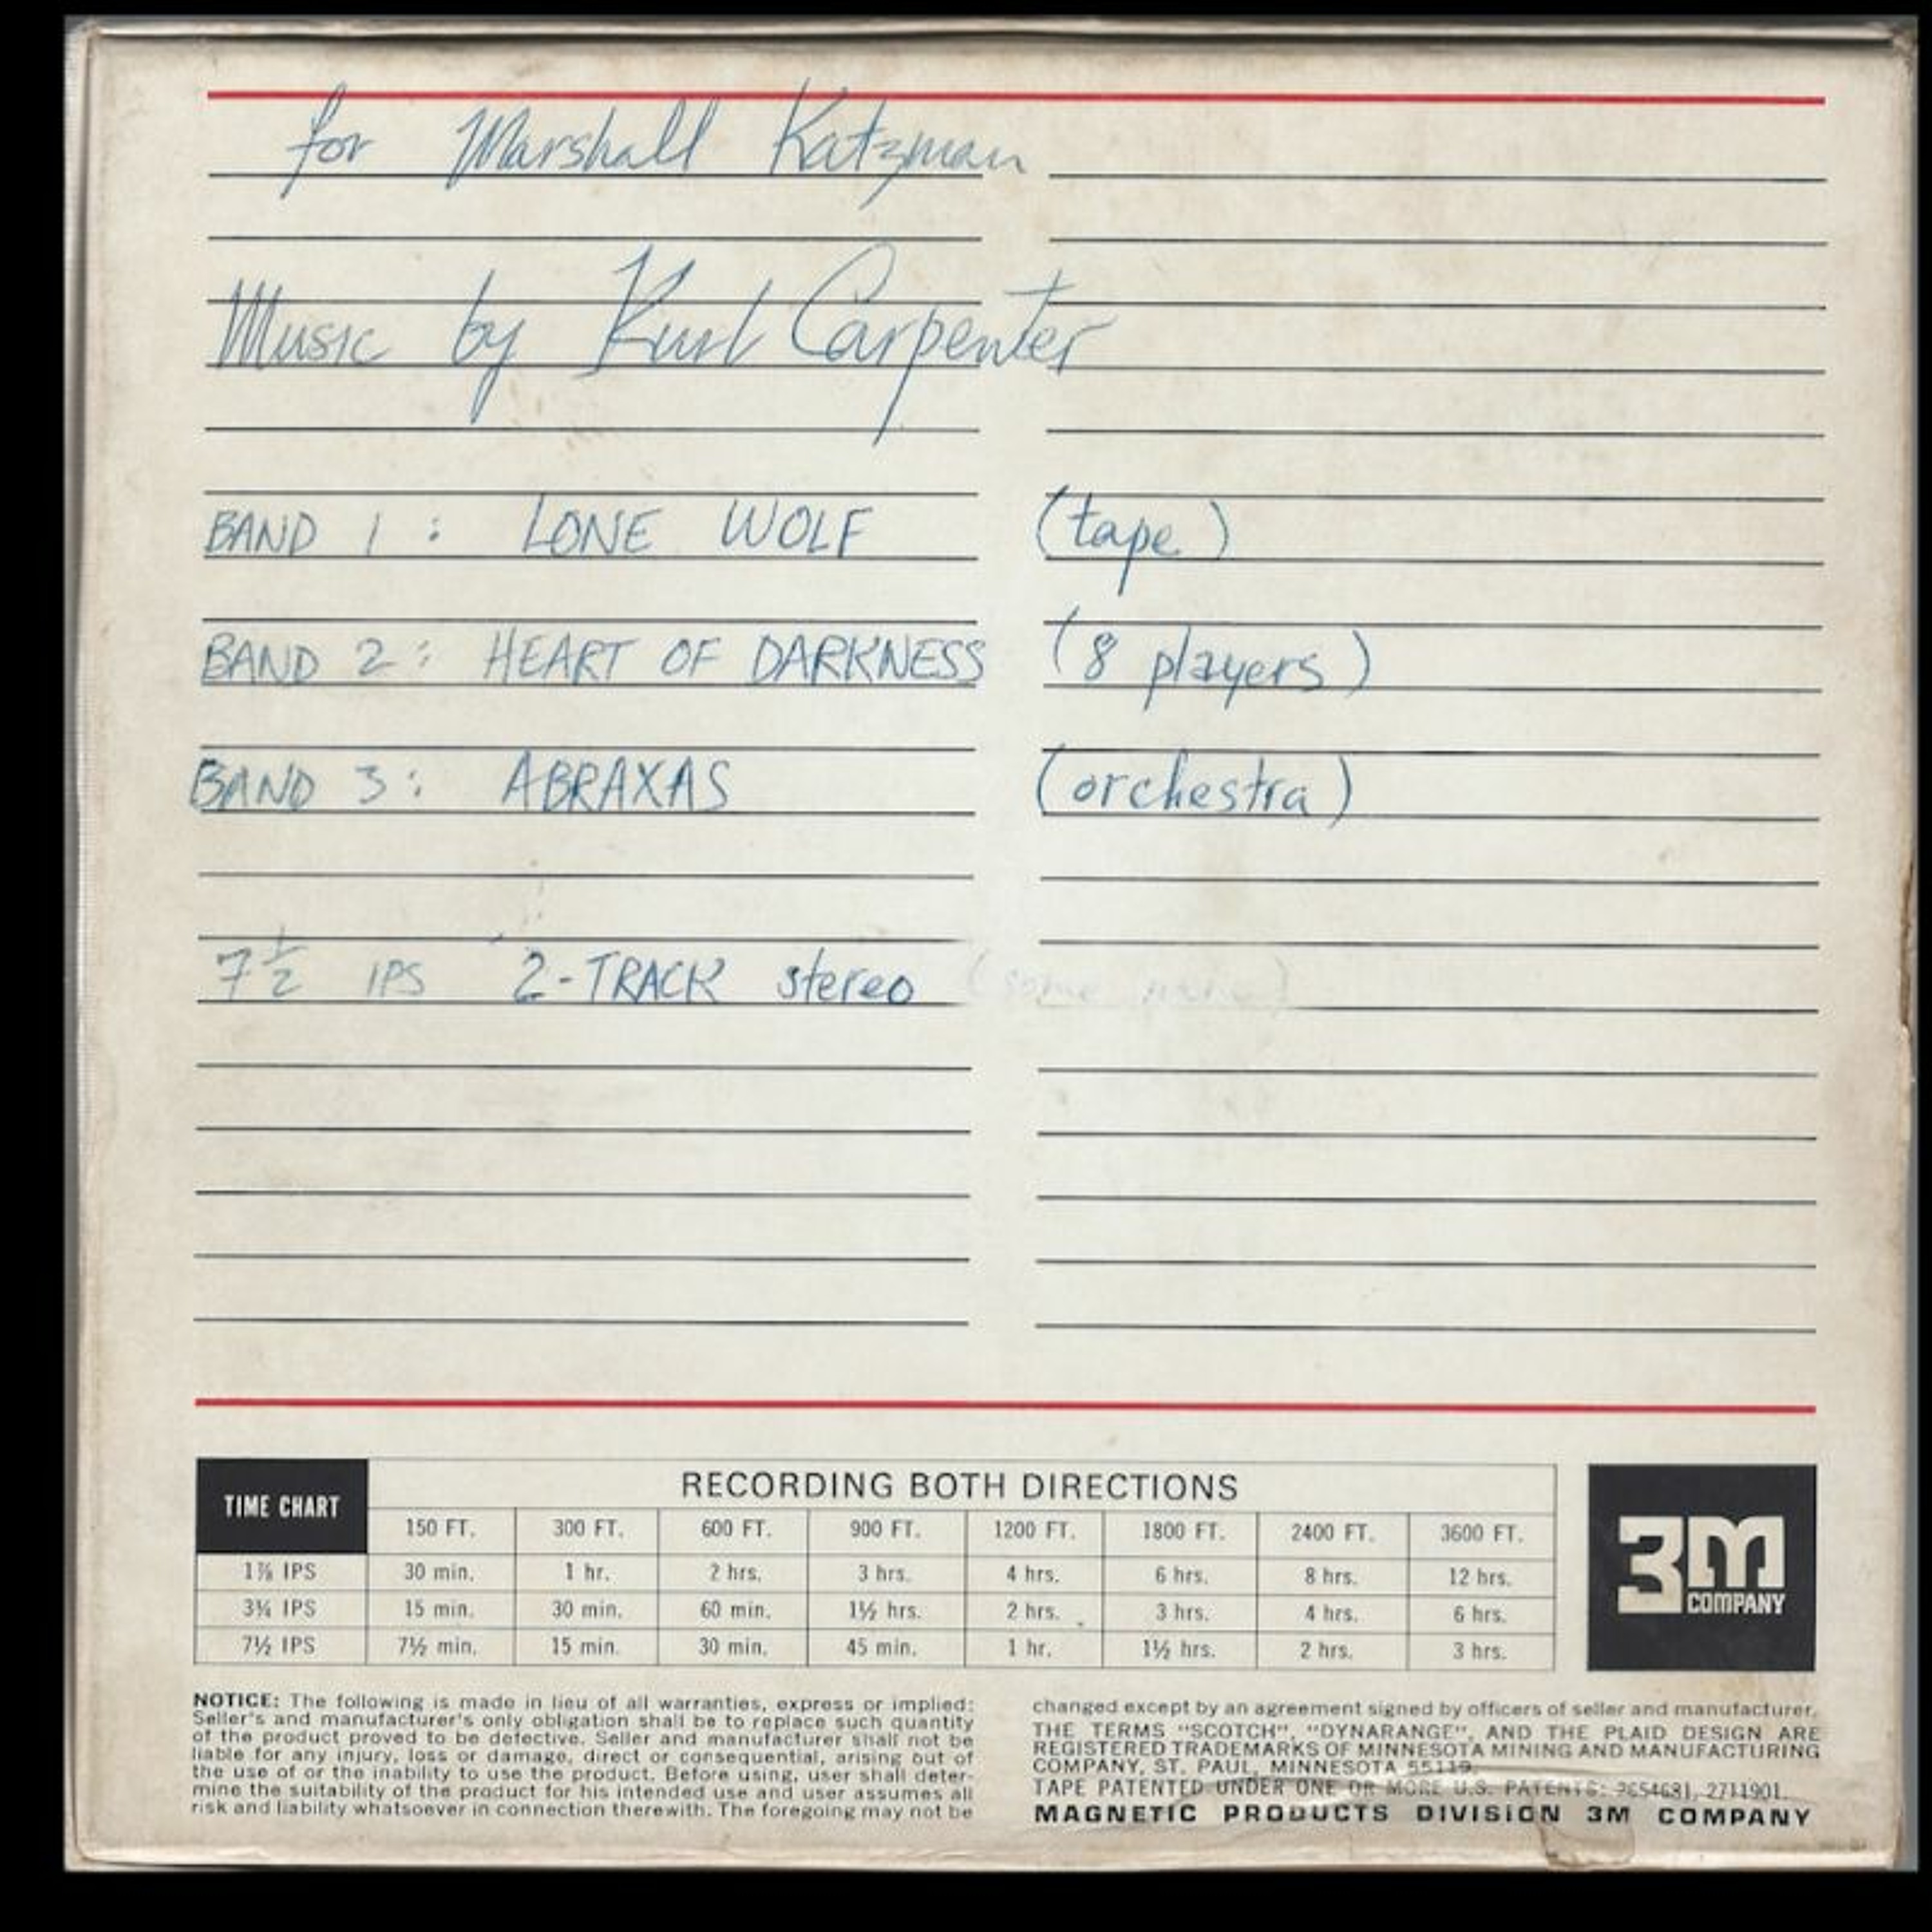 for Marshall Katzman
Music by Kurt Carpenter
BAND 1 : LONE WOLF (tape)
BAND 2 : HEART OF DARKNESS (8 players)
BAND 3 : ABRAXAS (orchestra)
7 1/2 IPS 2-TRACK stereo (some
TIME CHART
RECORDING BOTH DIRECTIONS
150 FT. 300 FT. 600 FT. 900 FT. 1200 FT. 1800 FT. 2400 FT. 3600 FT.
1⅞ IPS 30 min. 1 hr. 2 hrs. 3 hrs. 4 hrs. 6 hrs. 8 hrs. 12 hrs.
3¾ IPS 15 min. 30 min. 60 min. 1½ hrs. 2 hrs. 3 hrs. 4 hrs. 6 hrs.
7½ IPS 7½ min. 15 min. 30 min. 45 min. 1 hr. 1½ hrs. 2 hrs. 3 hrs.
3M
COMPANY
NOTICE: The following is made in lieu of all warranties, express or implied:
Seller's and manufacturer's only obligation shall be to replace such quantity
of the product proved to be defective. Seller and manufacturer shall not be
liable for any injury, loss or damage, direct or consequential, arising out of
the use of or the inability to use the product. Before using, user shall deter-
mine the suitability of the product for his intended use and user assumes all
risk and liability whatsoever in connection therewith. The foregoing may not be
changed except by an agreement signed by officers of seller and manufacturer.
THE TERMS "SCOTCH", "DYNARANGE", AND THE PLAID DESIGN ARE
REGISTERED TRADEMARKS OF MINNESOTA MINING AND MANUFACTURING
COMPANY, ST. PAUL, MINNESOTA 55119.
TAPE PATENTED UNDER ONE OR MORE U.S. PATENTS: 2654681, 2711901.
MAGNETIC PRODUCTS DIVISION 3M COMPANY